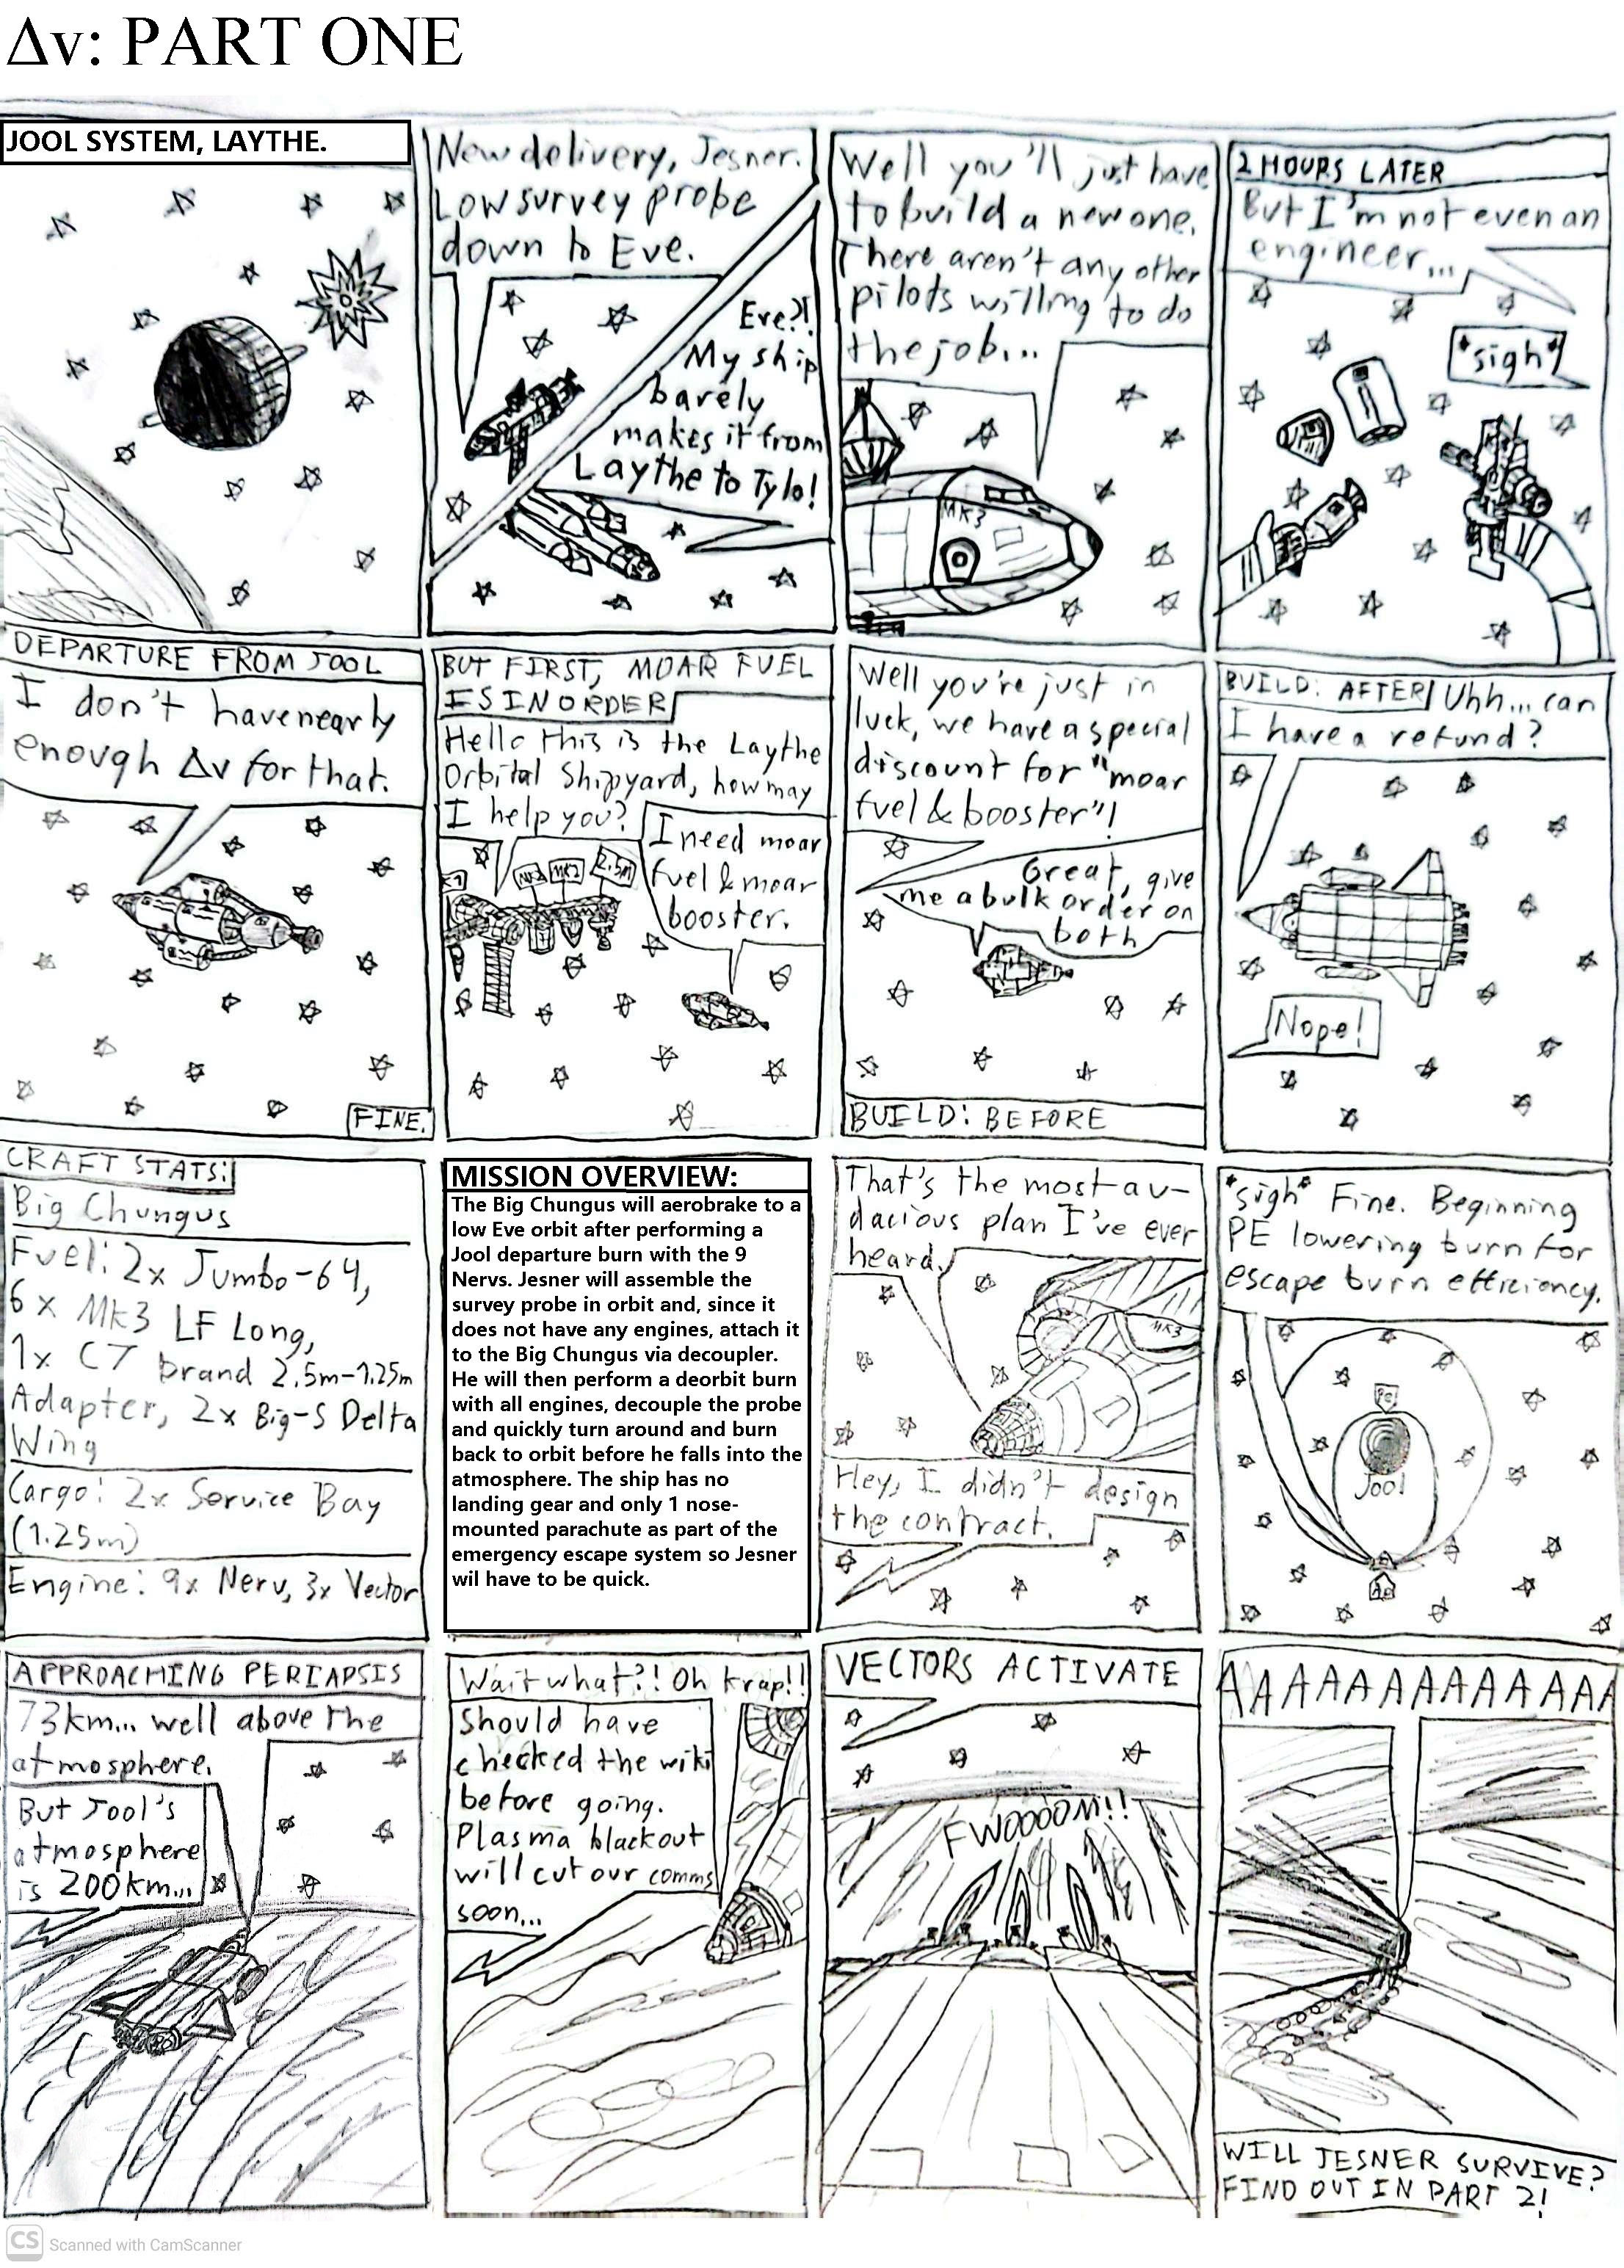 Δv: PART ONE
JOOL SYSTEM, LAYTHE.
New delivery, Jesner.
Low survey probe
down to Eve.
Eve?!
My ship
barely
makes it from
Laythe to Tylo!
Well you'll just have
to build a new one.
There aren't any other
pilots willing to do
the job...
MK3
2 HOURS LATER
But I'm not even an
engineer...
*sigh*
DEPARTURE FROM JOOL
I don't have nearly
enough Δv for that.
FINE.
BUT FIRST, MOAR FUEL
IS IN ORDER
Hello this is the Laythe
Orbital Shipyard, how may
I help you?
I need moar
fuel & moar
booster.
MK2
2.5m
Well you're just in
luck, we have a special
discount for "moar
fuel & booster"!
Great, give
me a bulk order on
both
BUILD: BEFORE
BUILD: AFTER
Uhh... can
I have a refund?
Nope!
CRAFT STATS:
Big Chungus
Fuel: 2x Jumbo-64,
6x Mk3 LF Long,
1x C7 brand 2.5m-1.25m
Adapter, 2x Big-S Delta
Wing
Cargo: 2x Service Bay
(1.25m)
Engine: 9x Nerv, 3x Vector
MISSION OVERVIEW:
The Big Chungus will aerobrake to a
low Eve orbit after performing a
Jool departure burn with the 9
Nervs. Jesner will assemble the
survey probe in orbit and, since it
does not have any engines, attach it
to the Big Chungus via decoupler.
He will then perform a deorbit burn
with all engines, decouple the probe
and quickly turn around and burn
back to orbit before he falls into the
atmosphere. The ship has no
landing gear and only 1 nose-
mounted parachute as part of the
emergency escape system so Jesner
wil have to be quick.
That's the most au-
dacious plan I've ever
heard.
MK3
Hey, I didn't design
the contract.
*sigh* Fine. Beginning
PE lowering burn for
escape burn efficiency.
Pe
Jool
Ap
APPROACHING PERIAPSIS
73km... well above the
atmosphere.
But Jool's
atmosphere
is 200km...
Wait what?! Oh krap!!
Should have
checked the wiki
before going.
Plasma blackout
will cut our comms
soon...
VECTORS ACTIVATE
FWOOOOM!!
AAAAAAAAAAAAA
WILL JESNER SURVIVE?
FIND OUT IN PART 2!
CS Scanned with CamScanner